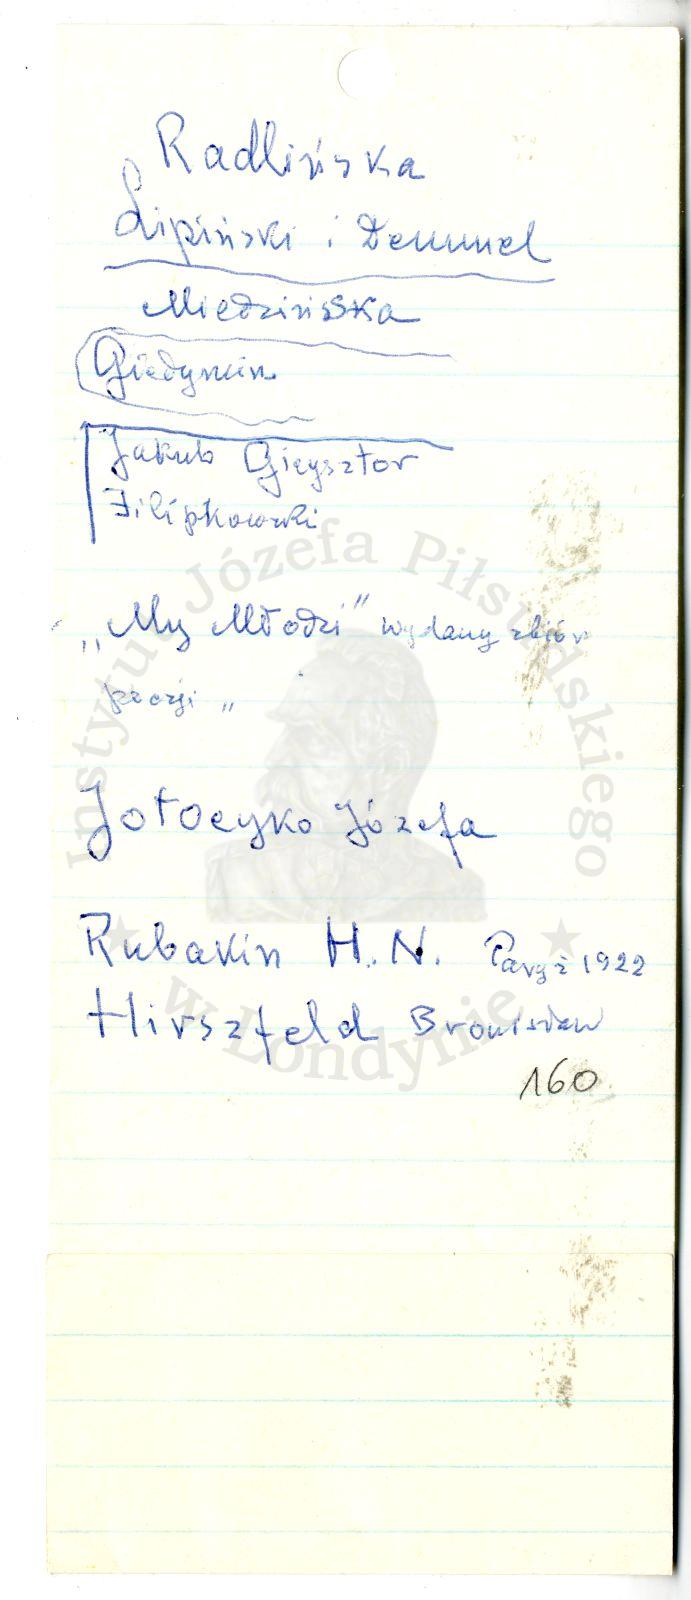 Radlińska
Lipiński i Demmel
Miedzińska
Giedymin
Jakub Gieysztor
Filipkowski
„My Młodzi” wydany zbiór
poezji „
Jotoeyko Józefa
Rubakin H. N. Paryż 1922
Hirszfeld Bronisław
160
Instytut Józefa Piłsudskiego
w Londynie